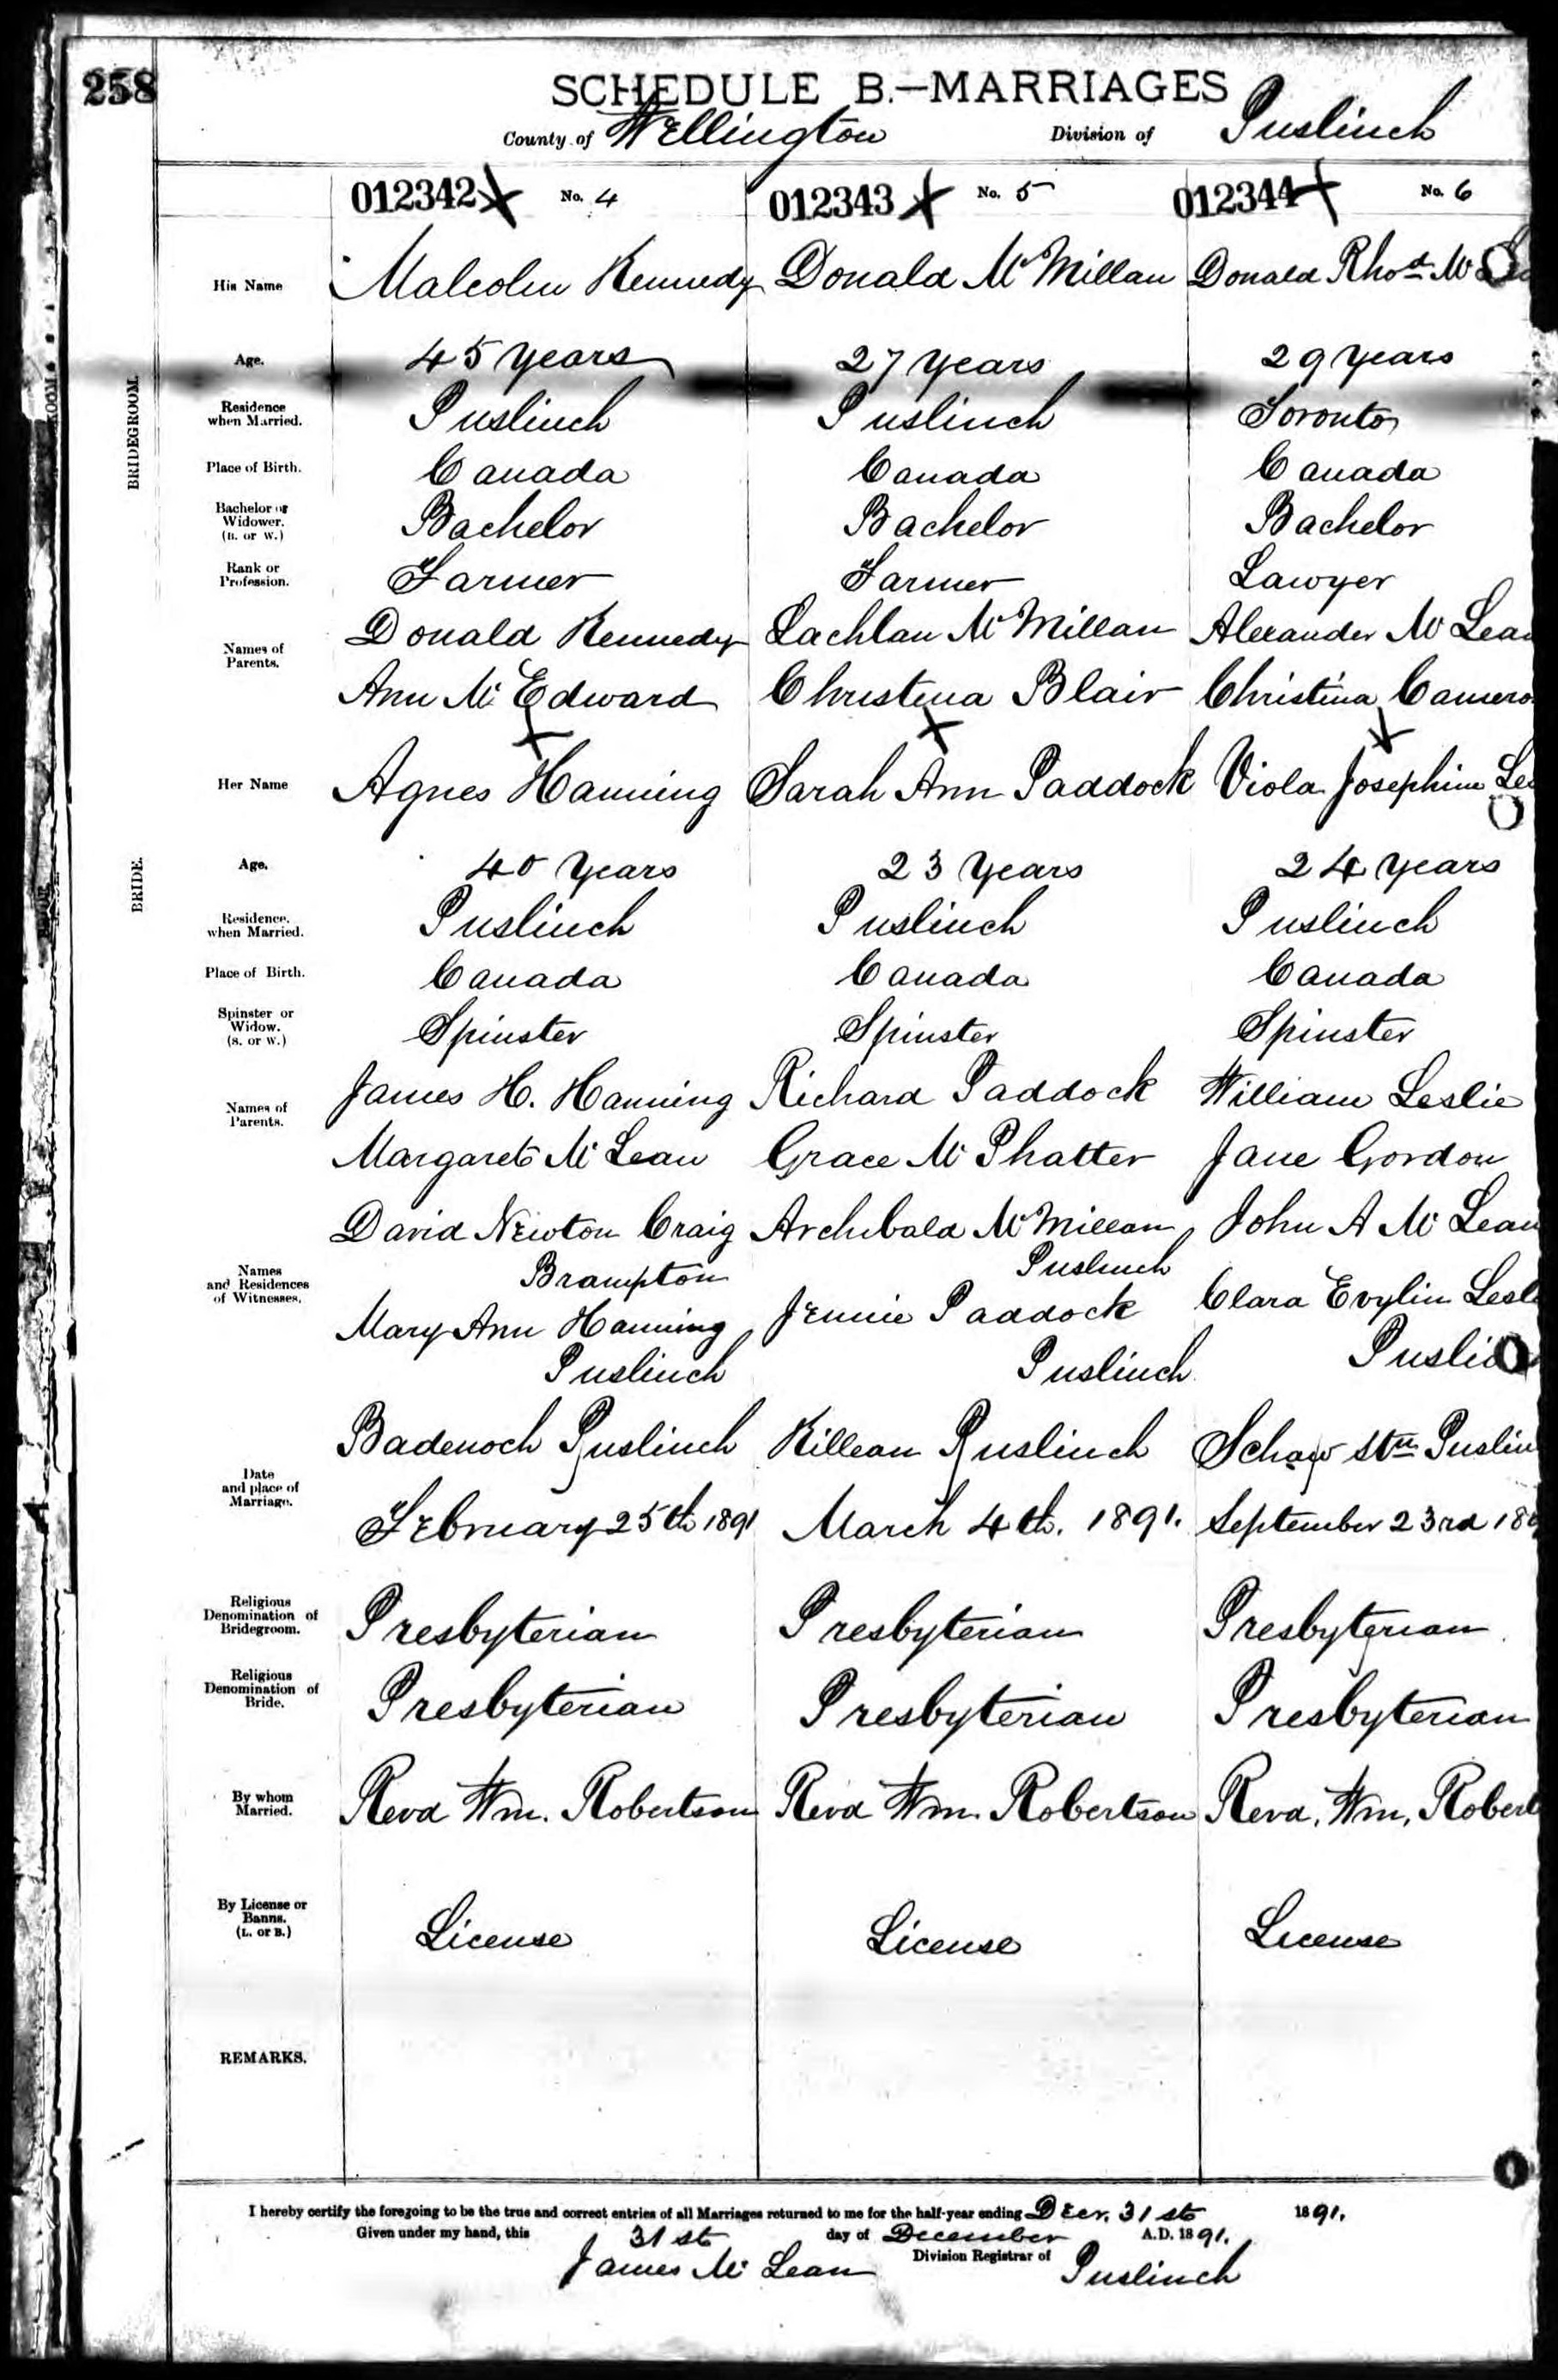 258
SCHEDULE B.—MARRIAGES
County of Wellington Division of Puslinch
012342 X No. 4 012343 X No. 5 012344 X No. 6
BRIDEGROOM.
His Name Malcolm Kennedy Donald Mc Millan Donald Rhod Mc
Age. 45 Years 27 Years 29 Years
Residence when Married. Puslinch Puslinch Toronto
Place of Birth. Canada Canada Canada
Bachelor or Widower. (B. or W.) Bachelor Bachelor Bachelor
Rank or Profession. Farmer Farmer Lawyer
Names of Parents. Donald Kennedy Lachlan Mc Millan Alexander Mc Lean
Ann Mc Edward Christina Blair Christina Camero
X X X
BRIDE.
Her Name Agnes Hanning Sarah Ann Paddock Viola Josephine Les
Age. 40 Years 23 Years 24 Years
Residence. when Married. Puslinch Puslinch Puslinch
Place of Birth. Canada Canada Canada
Spinster or Widow. (S. or W.) Spinster Spinster Spinster
Names of Parents. James H. Hanning Richard Paddock William Leslie
Margaret Mc Lean Grace Mc Phatter Jane Gordon
Names and Residences of Witnesses, David Newton Craig Archibald Mc Millan John A Mc Lean
Brampton Puslinch
Mary Ann Hanning Jennie Paddock Clara Evylin Lesl
Puslinch Puslinch Puslin
Date and place of Marriage. Badenoch Puslinch Killean Puslinch Schaw Stn Puslin
February 25th 1891 March 4th. 1891. September 23rd 189
Religious Denomination of Bridegroom. Presbyterian Presbyterian Presbyterian
Religious Denomination of Bride. Presbyterian Presbyterian Presbyterian
By whom Married. Revd Wm. Robertson Revd Wm. Robertson Revd. Wm. Robert
By License or Banns. (L. or B.) License License License
REMARKS.
I hereby certify the foregoing to be the true and correct entries of all Marriages returned to me for the half-year ending Decr. 31st 1891.
Given under my hand, this 31st day of December A.D. 1891.
James Mc Lean Division Registrar of Puslinch